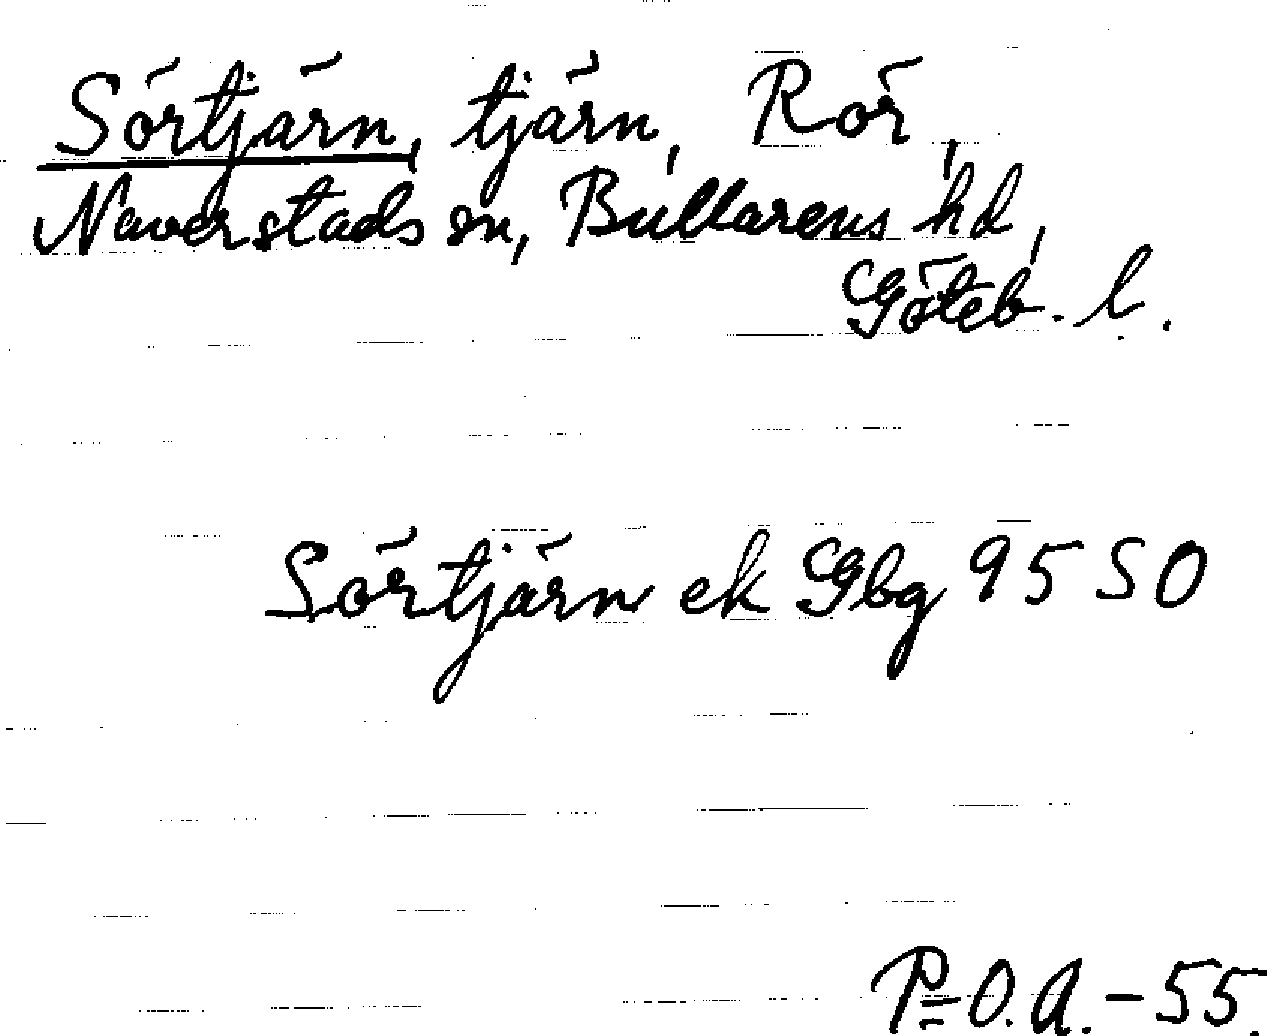 Sörtjärn, tjärn, Rör,
Naverstads sn, Bullarens hd,
Göteb. l.
Sörtjärn ek Gbg 95 SO
P=O.A.-55.